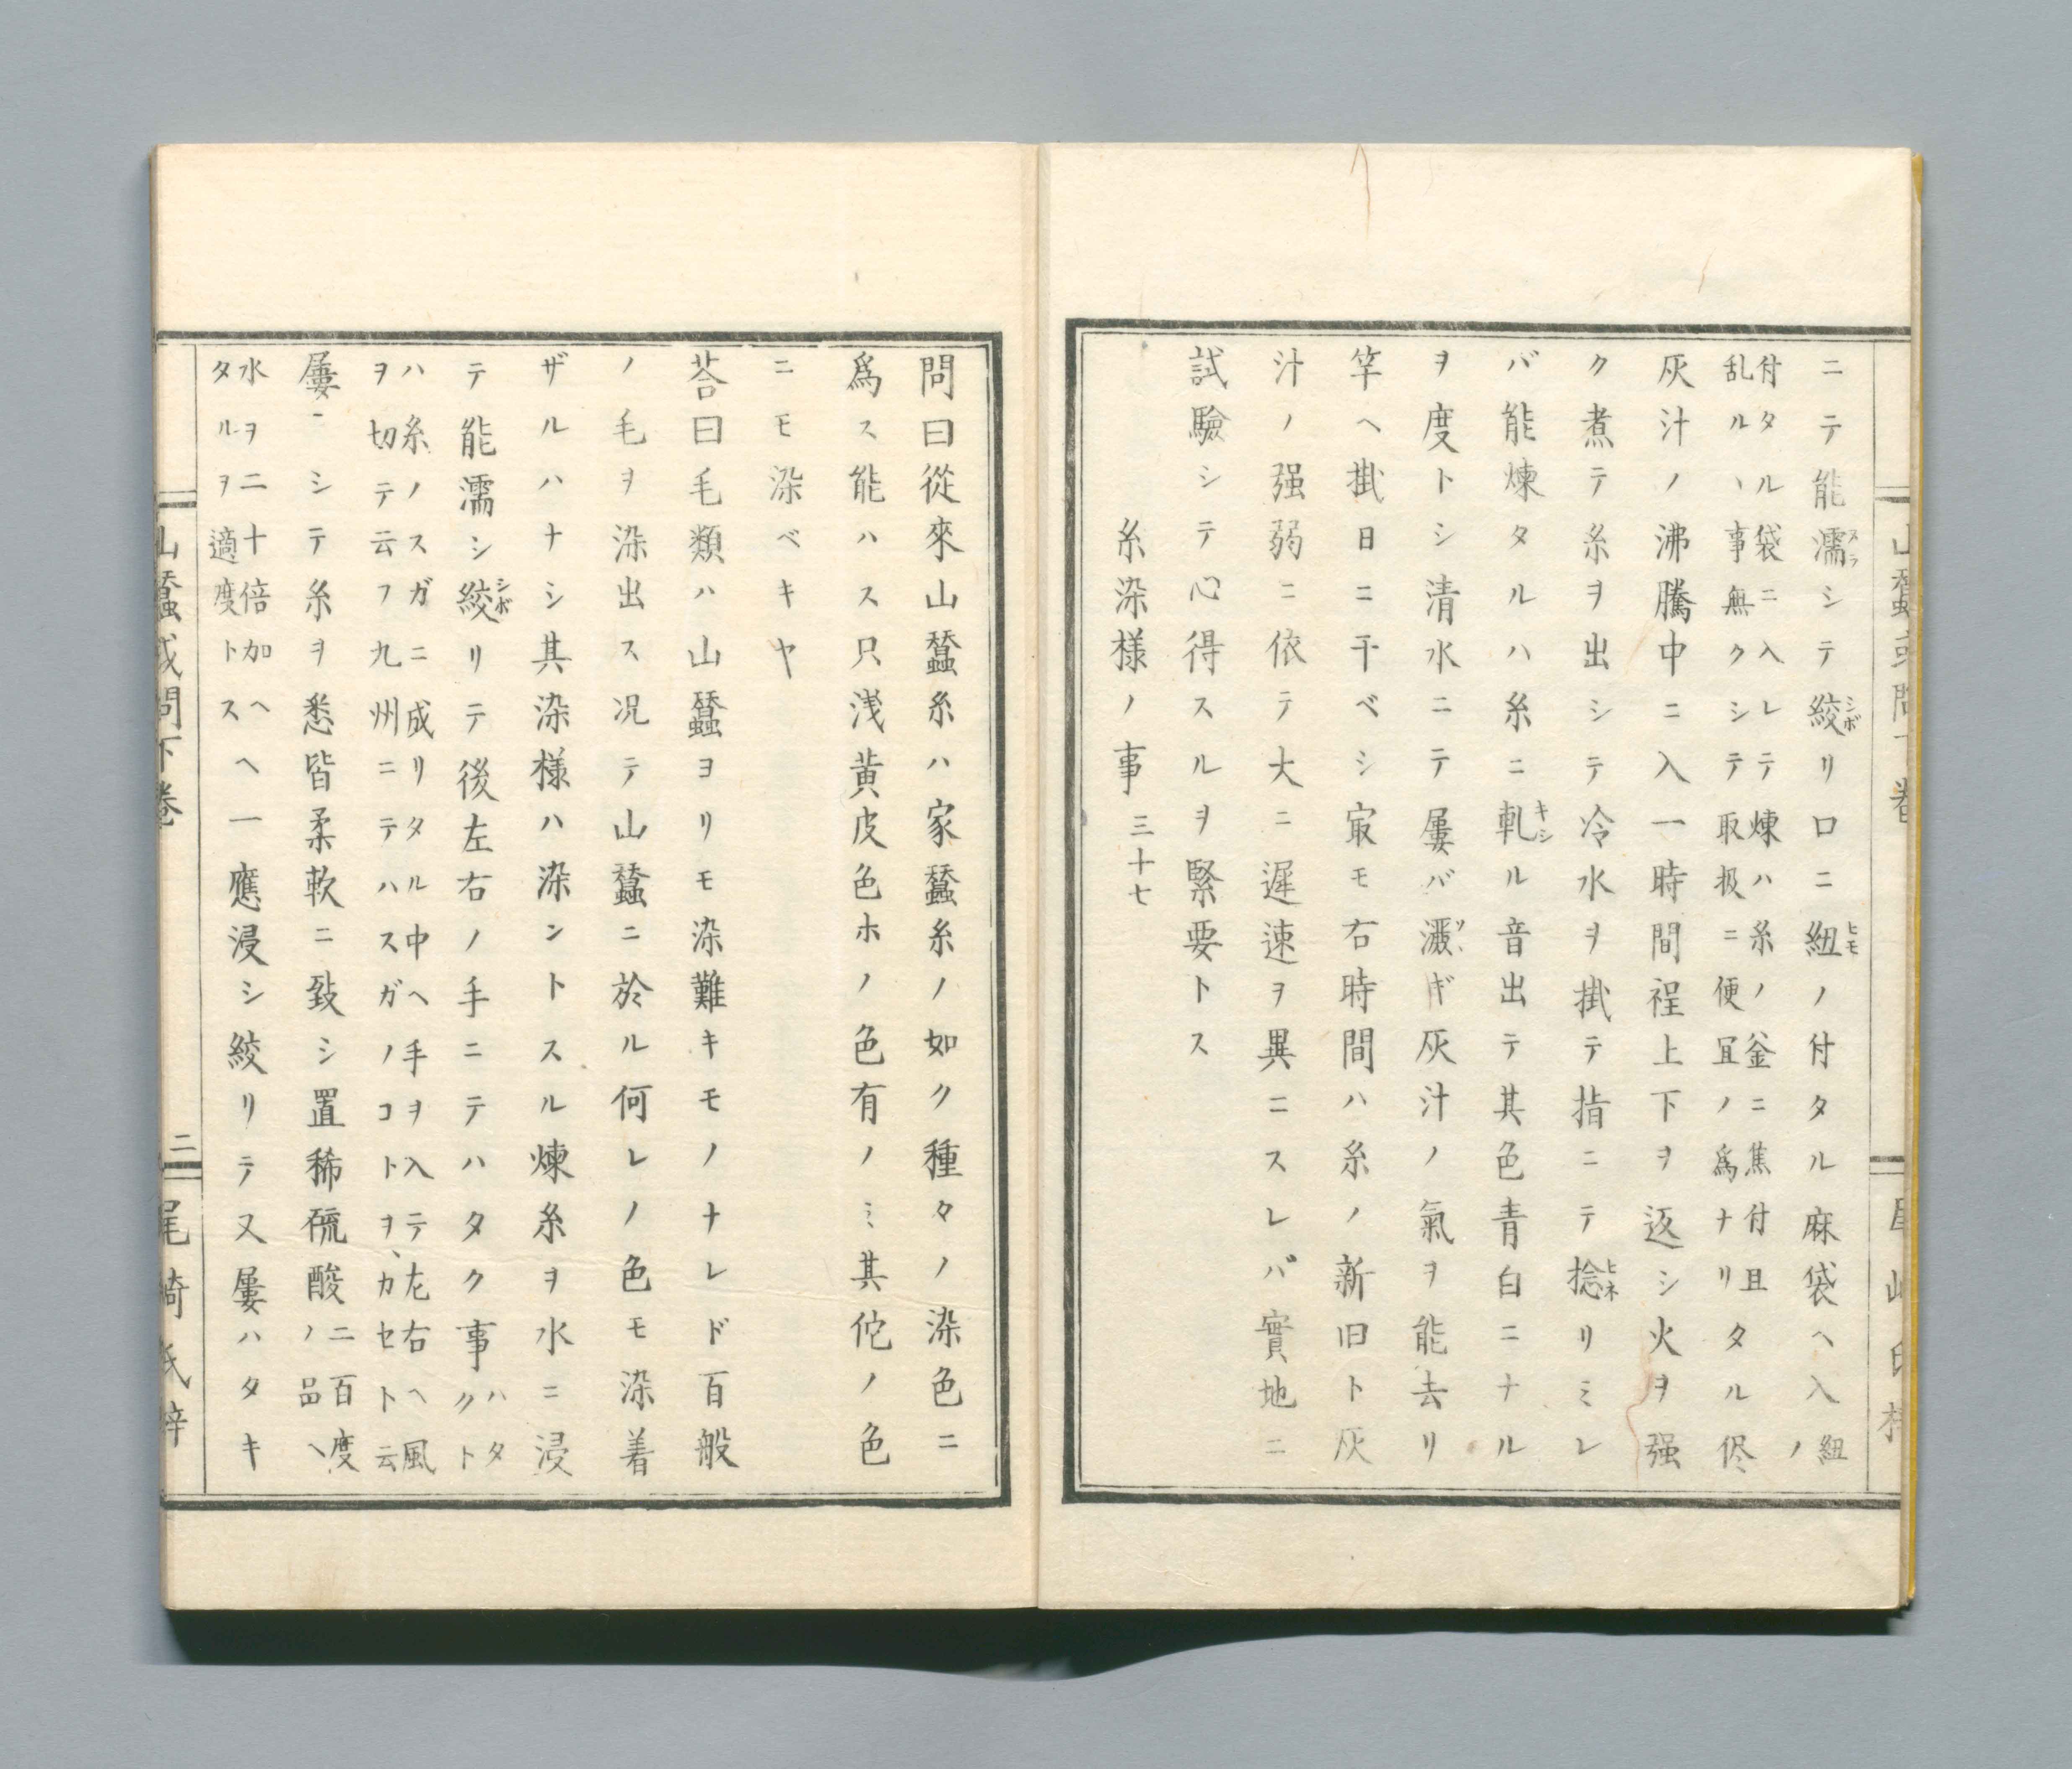 ニテ能濡シテ絞リ口ニ紐ノ付タル麻袋ヘ入紐ノ
付タル袋ニ入レテ煉ハ糸ノ釜ニ焦付且
乱ルヽ事無クシテ取扱ニ便冝ノ爲ナリタル侭
灰汁ノ沸騰中ニ入一時間程上下ヲ返シ火ヲ强
ク煮テ糸ヲ出シテ冷水ヲ掛テ指ニテ捻リミレ
バ能煉タルハ糸ニ軋ル音出テ其色青白ニナル
ヲ度トシ清水ニテ屢バ漑ギ灰汁ノ氣ヲ能去リ
竿ヘ掛日ニ干ベシ㝡モ右時間ハ糸ノ新旧ト灰
汁ノ强弱ニ依テ大ニ遲速ヲ異ニスレバ實地ニ
試驗シテ心得スルヲ緊要トス
糸染様ノ事 三十七
問曰從來山蠶糸ハ家蠶糸ノ如ク種々ノ染色ニ
爲ス能ハス只浅黄皮色ホノ色有ノミ其佗ノ色
ニモ染ベキヤ
荅曰毛類ハ山蠶ヨリモ染難キモノナレド百般
ノ毛ヲ染出ス况テ山蠶ニ於ル何レノ色モ染着
ザルハナシ其染様ハ染ントスル煉糸ヲ水ニ浸
テ能濡シ絞リテ後左右ノ手ニテハタク事ハタクト
ハ糸ノスガニ成リタル中ヘ手ヲ入テ左右ヘ風
ヲ切テ云フ九州ニテハスガノコトヲヽカセト云
屢〻シテ糸ヲ悉皆柔軟ニ致シ置稀硫酸二百度ノ品ヘ
水ヲ二十倍加ヘ
タルヲ適度トスヘ一應浸シ絞リテ又屢ハタキ
山蠶或問下巻
二
尾﨑氏梓